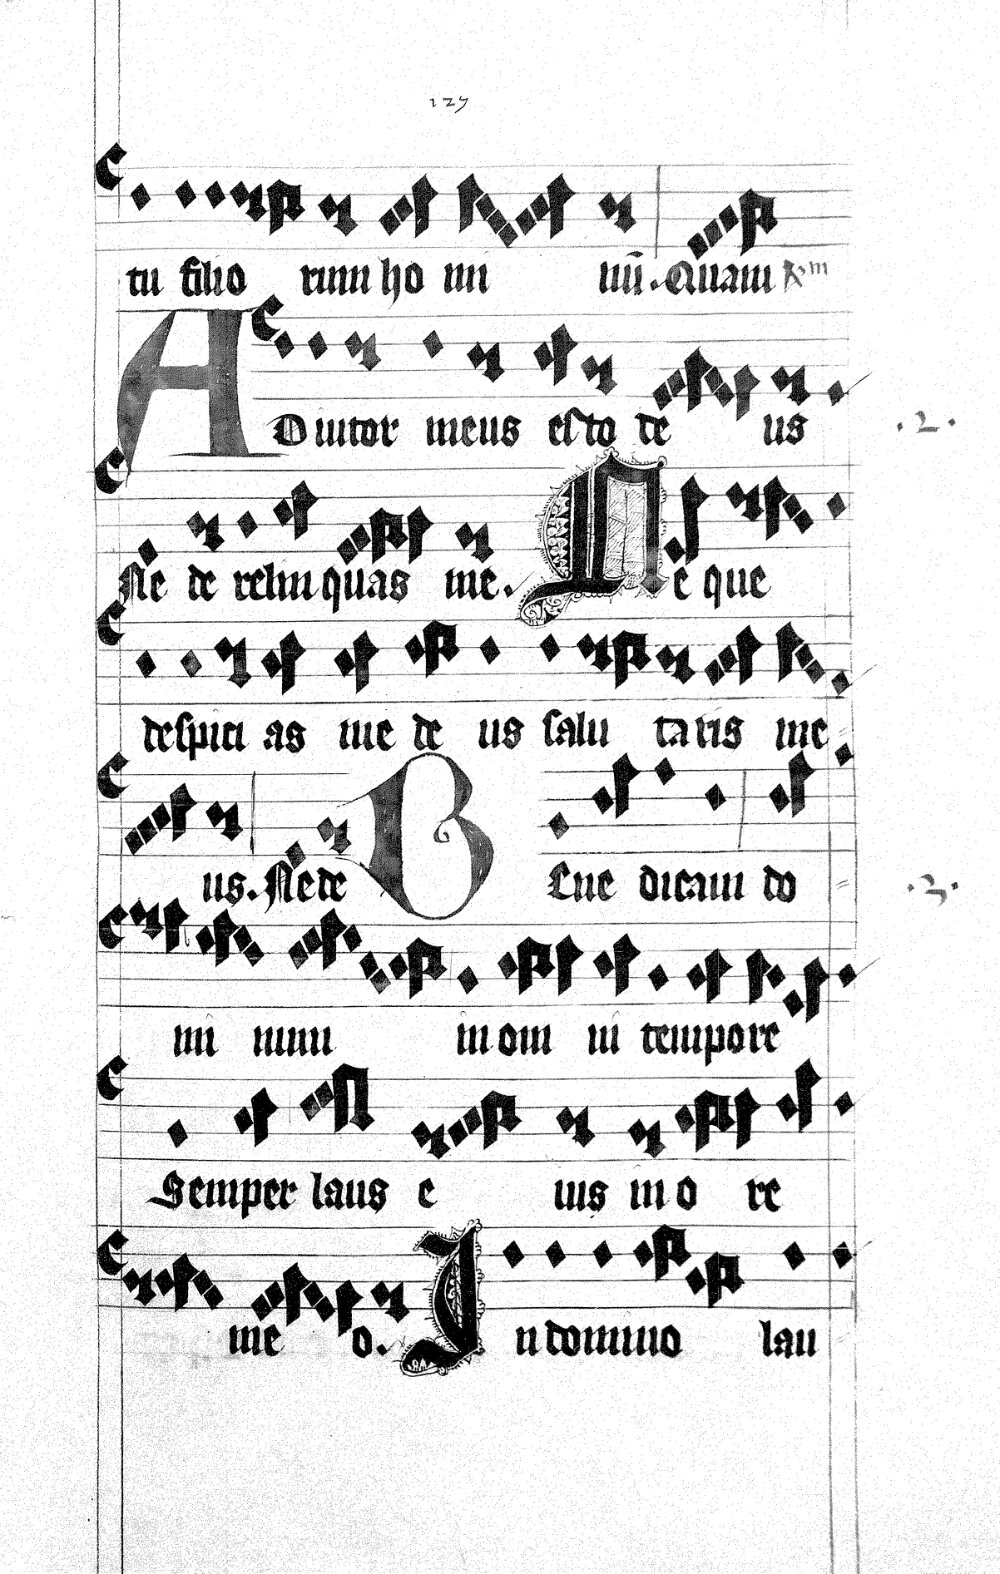 127
tu filio rum ho mi nū. Quam
ADiutor meus esto de us
.2.
Ne de relin quas me. Ne que
despici as me de us salu taris me
us. Ne de BEne dicam do
.3.
mi num in om ni tempore
Semper laus e ius in o re
me o. In domino lau